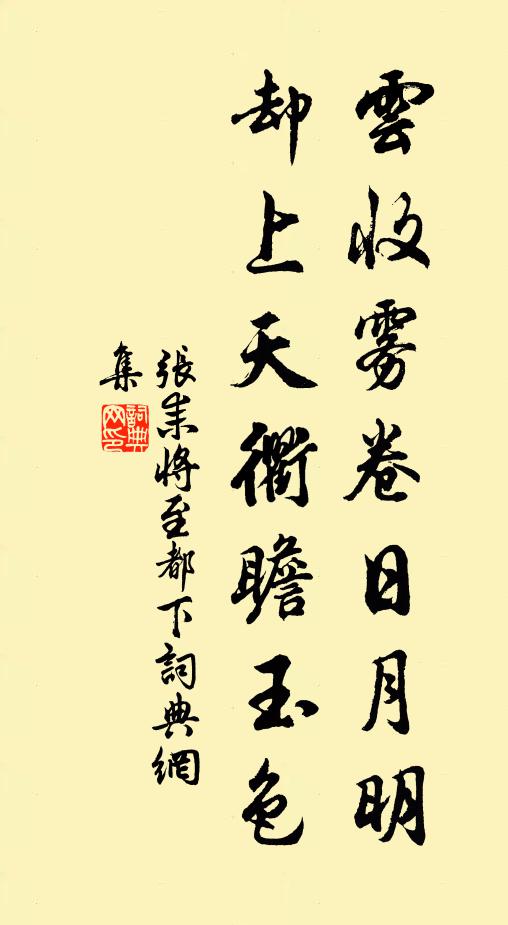 雲收雾卷日月明
却上天衢瞻玉色
張耒將至都下詞典網
集
詞典
网印